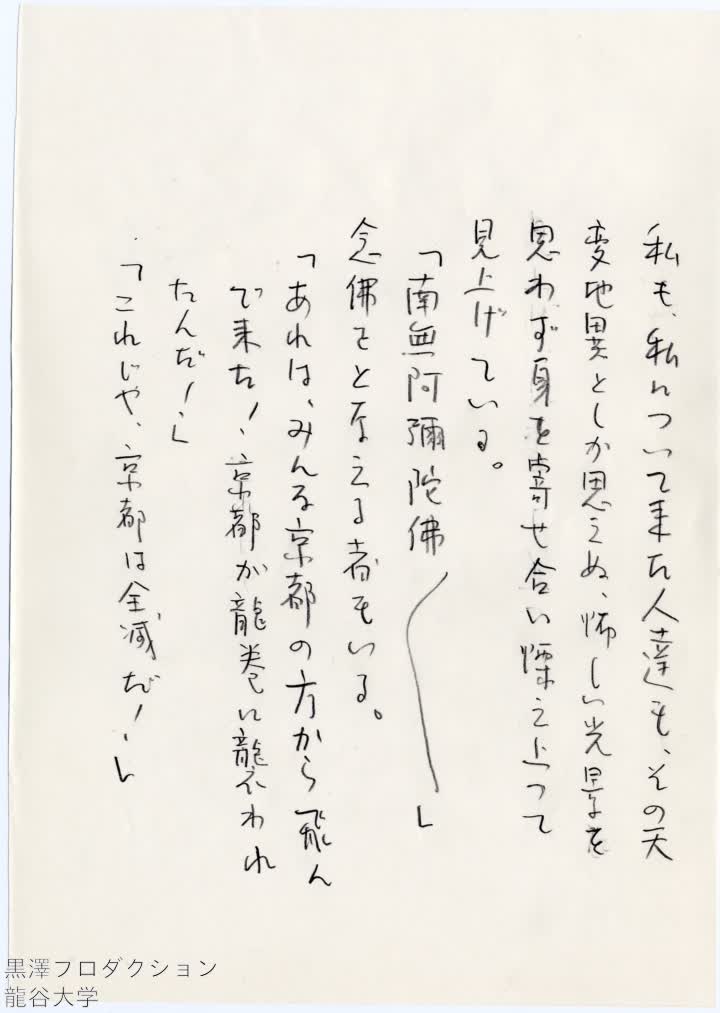 私も、私について来た人達も、その天
変地異としか思えぬ、怖しい光景を
思わず身を寄せ合い慄え上って
見上げている。
「南無阿彌陀佛〳〵」
念佛をとなえる者もいる。
「あれは、みんな京都の方から飛ん
で来た！、京都が龍巻に襲われ
たんだ！」
「これじゃ、京都は全滅だ！」
黒澤プロダクション
龍谷大学